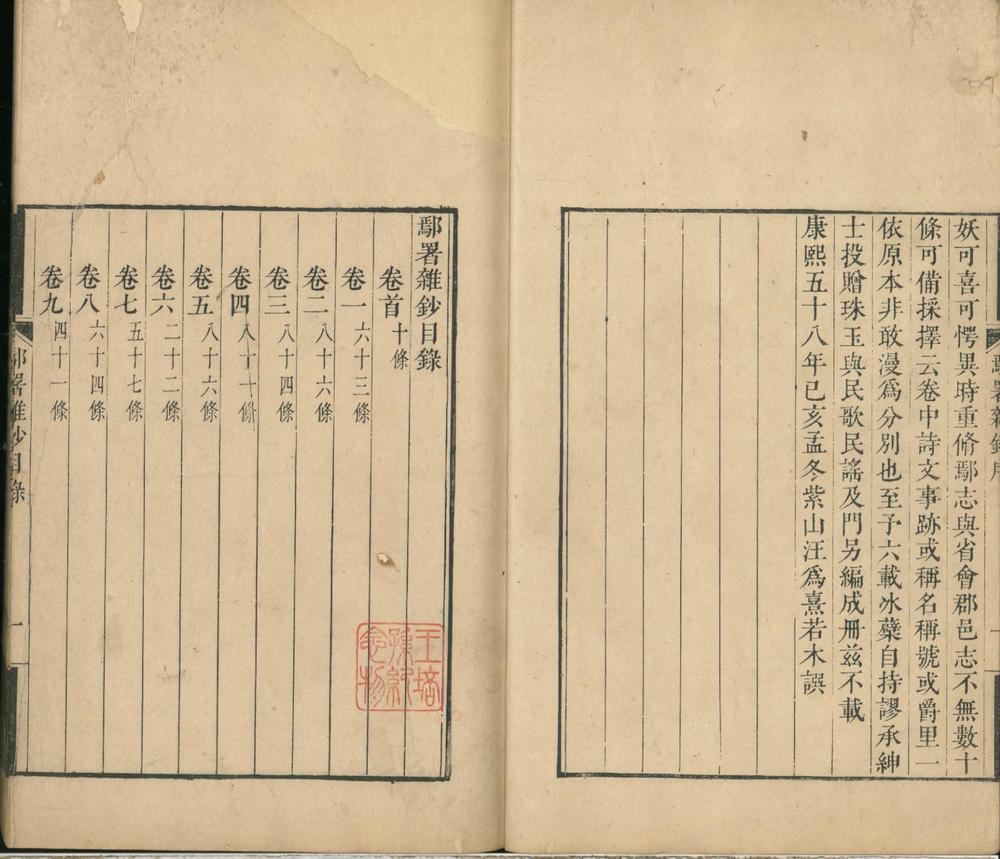 妖可喜可愕異時重脩鄢志與省會郡邑志不無數十
條可備採擇云卷中詩文事跡或稱名稱號或爵里一
依原本非敢漫爲分別也至予六載冰蘗自持謬承紳
士投贈珠玉與民歌民謠及門另編成冊兹不載
康熙五十八年己亥孟冬紫山汪爲熹若木譔
鄢署雜鈔目錄
卷首十條
卷一六十三條
卷二八十六條
卷三八十四條
卷四八十一條
卷五八十六條
卷六二十二條
卷七五十七條
卷八六十四條
卷九四十一條
鄢署雜鈔目錄
一
王培孫紀念物